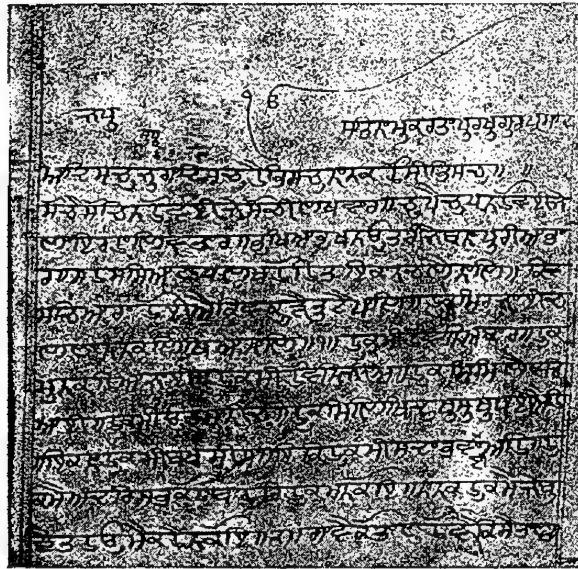 ਜਪੁ
ਸਤਿਨਾਮੁ ਕਰਤਾ ਪੁਰਖੁ ਗੁਰ ਪ੍ਰਸਾਦਿ
ਆਦਿ ਸਚੁ ਜੁਗਾਦਿ ਸਚੁ ਹੈ ਭਿ ਸਚੁ ਨਾਨਕ ਹੋਸੀ ਭਿ ਸਚੁ॥
ਸੋਚੈ ਸੋਚਿ ਨ ਹੋਵਈ ਜੇ ਸੋਚੀ ਲਖ ਵਾਰ ਚੁਪੈ ਚੁਪ ਨ ਹੋਵਈ ਜੇ
ਲਾਇ ਰਹਾ ਲਿਵ ਤਾਰ ਭੁਖਿਆ ਭੁਖ ਨ ਉਤਰੀ ਜੇ ਬੰਨਾ ਪੁਰੀਆ ਭ
ਾਰ ਸਹਸ ਸਿਆਣਪਾ ਲਖ ਹੋਹਿ ਤ ਇਕ ਨ ਚਲੈ ਨਾਲਿ॥ ਕਿਵ
ਸਚਿਆਰਾ ਹੋਈਐ ਕਿਵ ਕੂੜੈ ਤੁਟੈ ਪਾਲਿ ਹੁਕਮਿ ਰਜਾਈ ਚ
ਲਣਾ ਨਾਨਕ ਲਿਖਿਆ ਨਾਲਿ॥੧॥ ਹੁਕਮੀ ਹੋਵਨਿ ਆਕਾਰ ਹੁਕ
ਮੁ ਨ ਕਹਿਆ ਜਾਈ ਹੁਕਮੀ ਹੋਵਨਿ ਜੀਅ ਹੁਕਮਿ ਮਿਲੈ ਵਡਿ
ਆਈ ਹੁਕਮੀ ਉਤਮੁ ਨੀਚੁ ਹੁਕਮਿ ਲਿਖਿ ਦੁਖ ਸੁਖ ਪਾਈਅਹਿ
ਇਕਨਾ ਹੁਕਮੀ ਬਖਸੀਸ ਇਕਿ ਹੁਕਮੀ ਸਦਾ ਭਵਾਈਅਹਿ ਹੁ
ਕਮੈ ਅੰਦਰਿ ਸਭੁ ਕੋ ਬਾਹਰਿ ਹੁਕਮ ਨ ਕੋਇ ਨਾਨਕ ਹੁਕਮੈ ਜੇ ਬੁ
ਝੈ ਤ ਹਉਮੈ ਕਹੈ ਨ ਕੋਇ ਗਾਵੈ ਕੋ ਤਾਣੁ ਹੋਵੈ ਕਿਸੈ ਤਾਣੁ